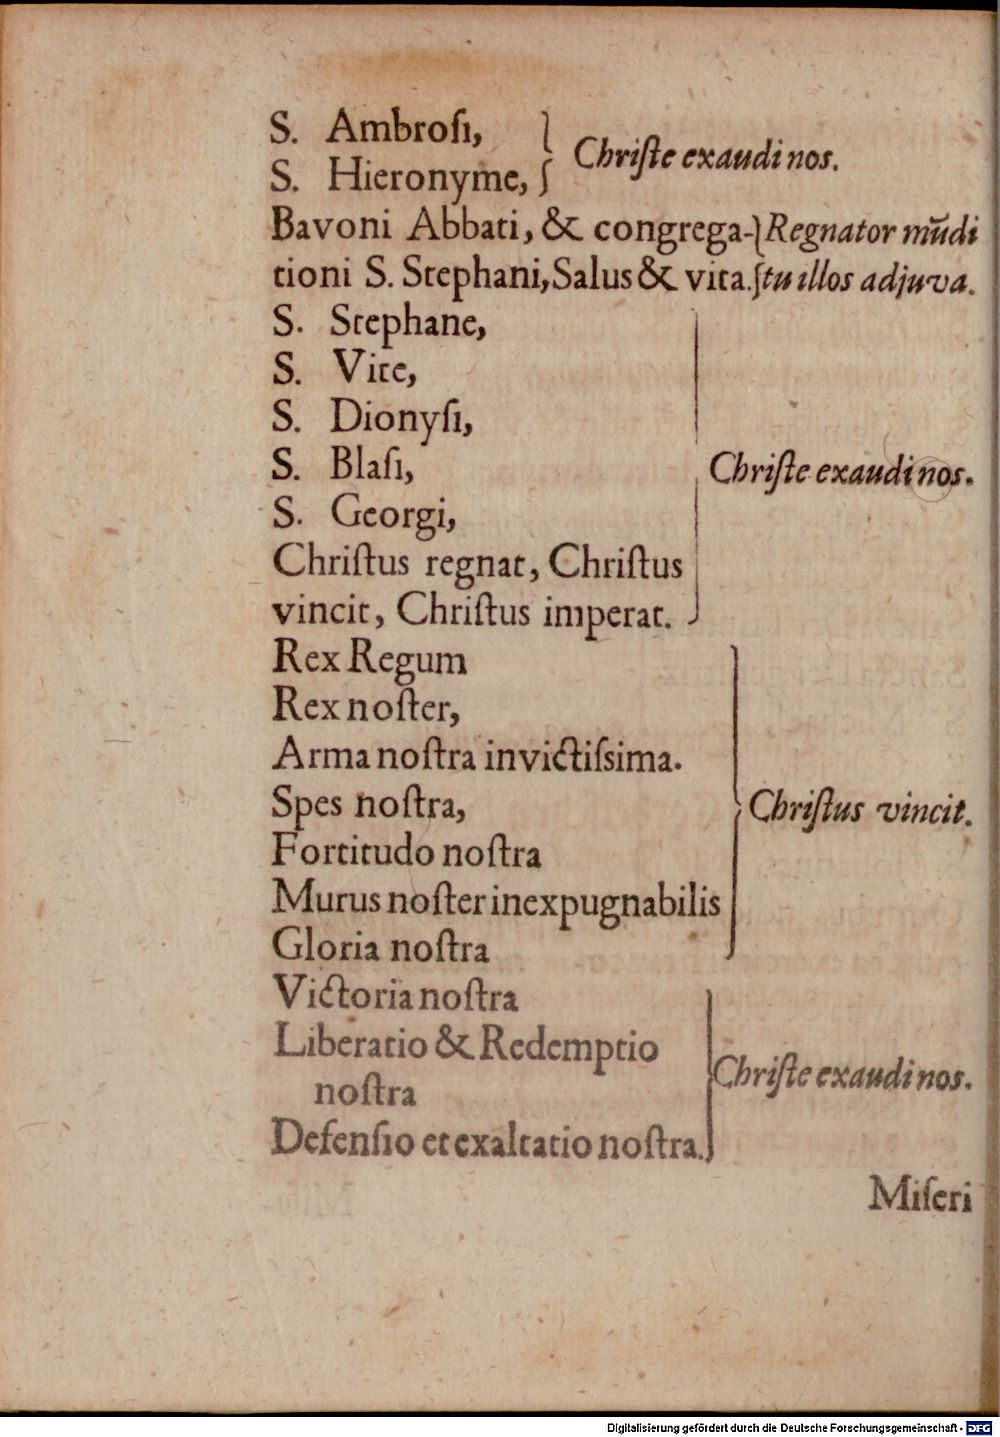 S. Ambroſi,
S. Hieronyme,
Chriſte exaudi nos.
Bavoni Abbati, & congrega- Regnator mũdi
tioni S. Stephani, Salus & vita. tu illos adjuva.
S. Stephane,
S. Vite,
S. Dionyſi,
S. Blaſi,
S. Georgi,
Chriſtus regnat, Chriſtus
vincit, Chriſtus imperat.
Chriſte exaudi nos.
Rex Regum
Rex noſter,
Arma noſtra invictiſsima.
Spes noſtra,
Fortitudo noſtra
Murus noſter inexpugnabilis
Gloria noſtra
Chriſtus vincit.
Victoria noſtra
Liberatio & Redemptio
noſtra
Defenſio et exaltatio noſtra.
Chriſte exaudi nos.
Miſeri
Digitalisierung gefördert durch die Deutsche Forschungsgemeinschaft - DFG